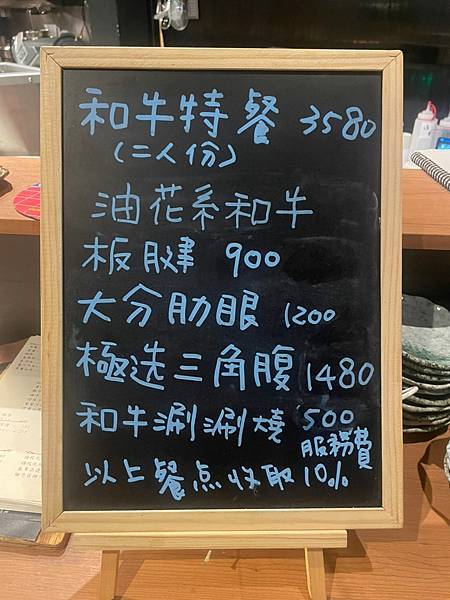 和牛特餐 3580
(二人份)
油花系和牛
板腱 900
大分肋眼 1200
極选三角腹 1480
和牛涮涮燒 500
服務費
以上餐点收取10%